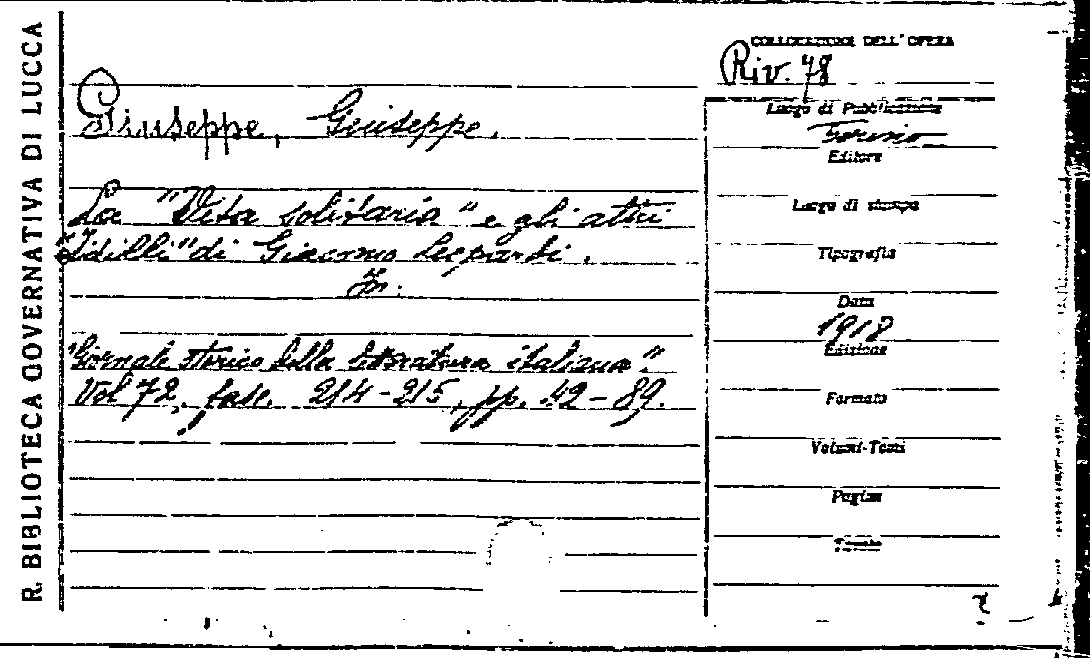 R. BIBLIOTECA GOVERNATIVA DI LUCCA
COLLOCAZIONE DELL'OPERA
Riv. 78
Giuseppe, Giuseppe.
La "Vita solitaria" e gli altri
"Idilli" di Giacomo Leopardi.
In:
"Giornale storico della letteratura italiana".
Vol 72, fasc. 214-215, pp. 42-89.
Luogo di Pubblicazione
Torino
Editore
Luogo di stampa
Tipografia
Data
1918
Edizione
Formato
Volumi-Tomi
Pagine